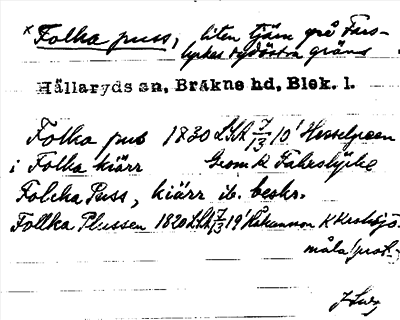 * Folka puss, liten tjärn på Fars-
lyckes sydöstra gräns
Hällaryds sn, Bräkne hd, Blek. l.
Folka pus 1830 LSA 7/13 10' Hesselgreen
i Folka kiärr Geom k Fahrslycke
Folcka Puss, kiärr ib. beskr.
Follka Plussen 1820 LSA 7/13 19' Håkansson K
måla! prot.